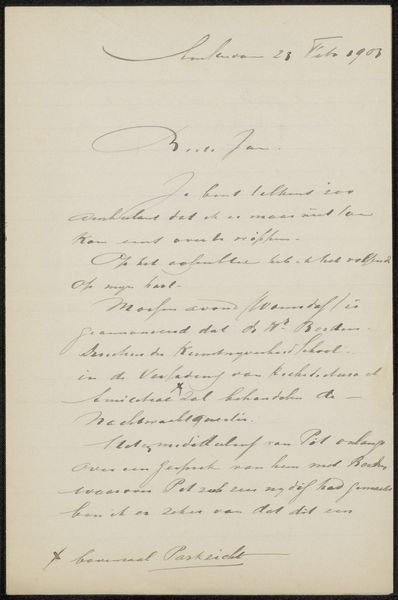 23 Febr 1903
Beste Jan.
Je bent telkens zoo
dat ik er maar niet toe
kan eens over te wippen.
Op het oogenblik heb ik het volgende
op mijn hart.
Morgen avond (Woensdag) is
geannonceerd dat de Hr
Directeur der Kunstnijverheidschool
in de Vergadering van Architectura et
Amicitia x zal behandelen de
Nachtwachtquestie.
mededeeling van Pit onlangs
over een gesprek van hem met
waarover Pit zich zeer nijdig had gemaakt
ben ik er zeker van dat dit een
x bovenzaal Parkzicht